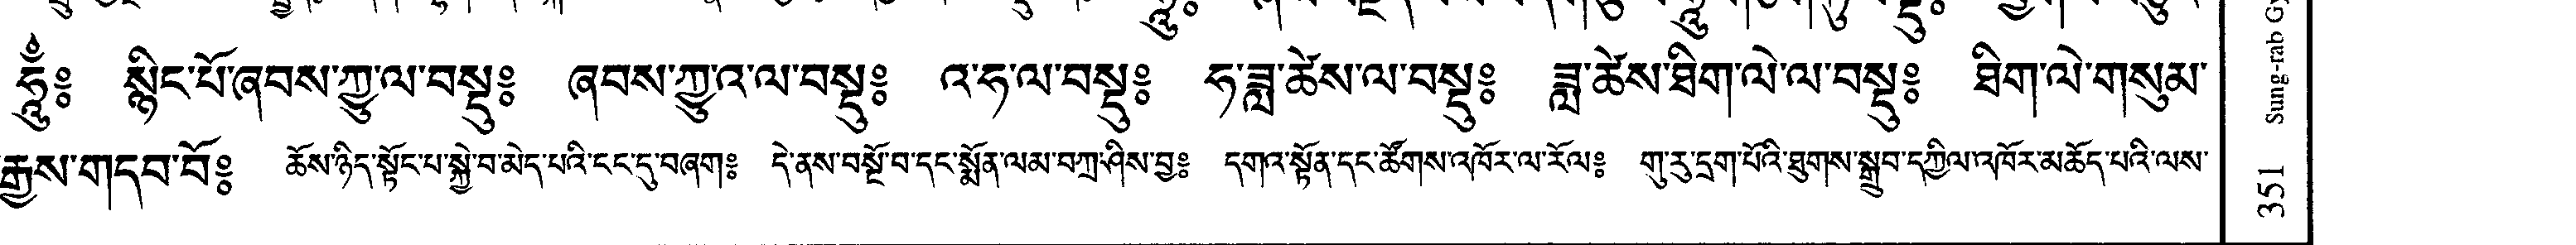 ཧཱུྃ༔ སྙིང་པོ་ཞབས་ཀྱུ་ལ་བསྡུ༔ ཞབས་ཀྱུ་འ་ལ་བསྡུ༔ འ་ཧ་ལ་བསྡུ༔ ཧ་ཟླ་ཚེས་ལ་བསྡུ༔ ཟླ་ཚེས་ཐིག་ལེ་ལ་བསྡུ༔ ཐིག་ལེ་གསུམ་
རྒྱས་གདབ་བོ༔ ཆོས་ཉིད་སྟོང་པ་སྐྱེ་བ་མེད་པའི་ངང་དུ་བཞག༔ དེ་ནས་བསྔོ་བ་དང་སྨོན་ལམ་བཀྲ་ཤིས་བྱ༔ དགའ་སྟོན་དང་ཚོགས་འཁོར་ལ་རོལ༔ གུ་རུ་དྲག་པོའི་ཐུགས་སྒྲུབ་དཀྱིལ་འཁོར་མཆོད་པའི་ལས་
Sung-rab
351